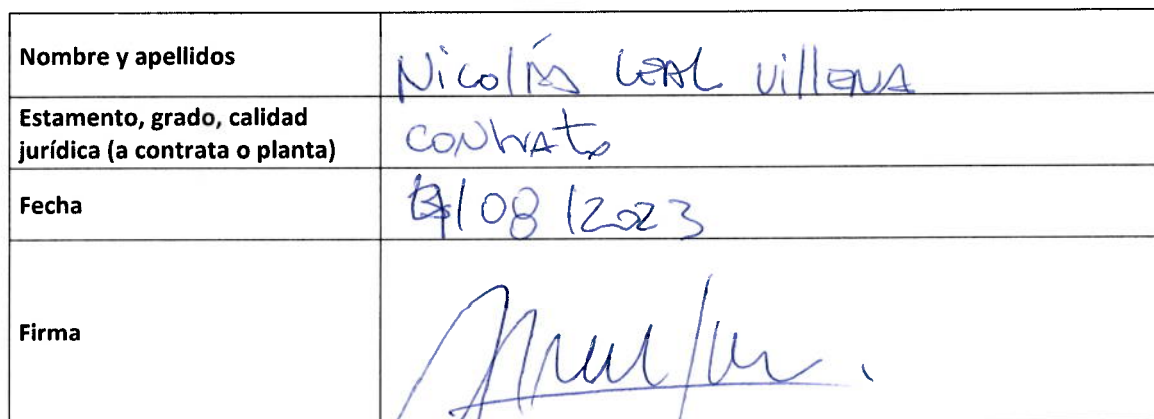 Nombre y apellidos
Nicolás Leal Villena
Estamento, grado, calidad
jurídica (a contrata o planta)
Contrato
Fecha
/08/2023
Firma